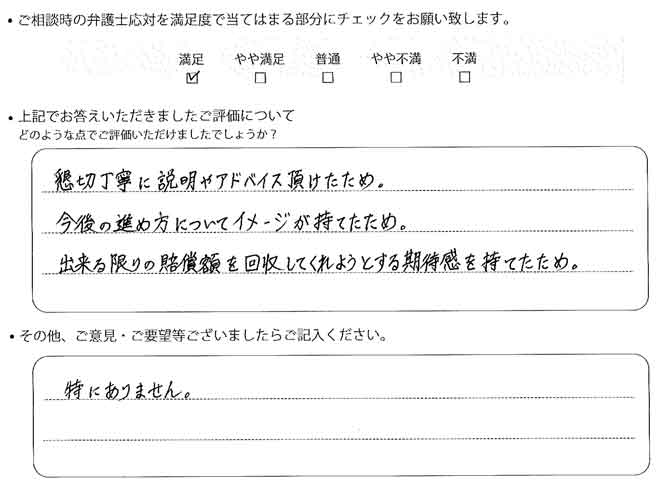 ・ご相談時の弁護士応対を満足度で当てはまる部分にチェックをお願い致します。
満足 やや満足 普通 やや不満 不満
☑ ☐ ☐ ☐ ☐
・上記でお答えいただきましたご評価について
どのような点でご評価いただけましたでしょうか？
懇切丁寧に説明やアドバイス頂けたため。
今後の進め方についてイメージが持てたため。
出来る限りの賠償額を回収してくれようとする期待感を持てたため。
・その他、ご意見・ご要望等ございましたらご記入ください。
特にありません。